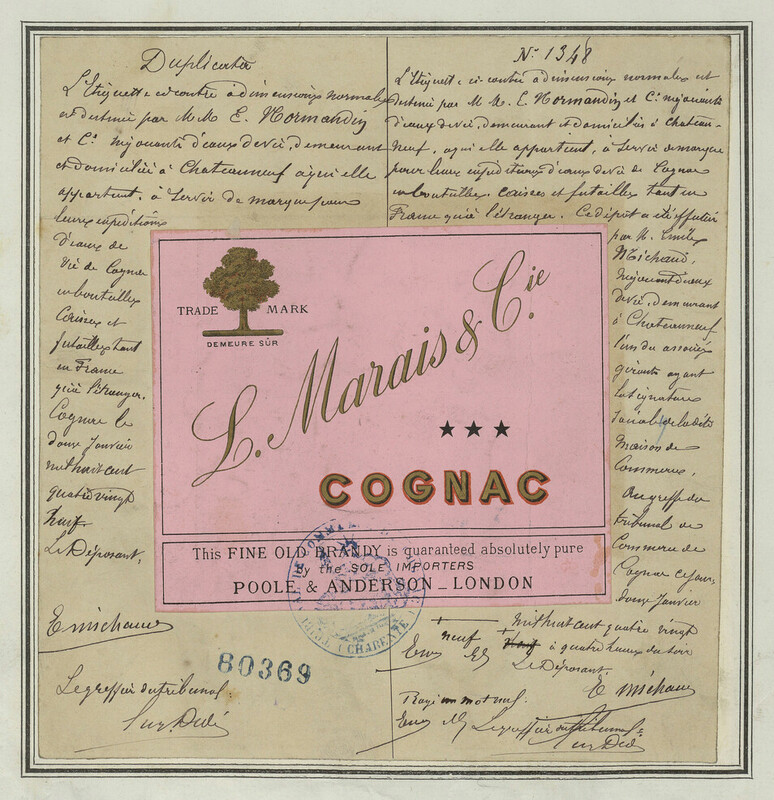 Duplicata
L'Etiquette ci-contre à dimensions normales
est destinée par M.M. E. Normandin
et Cie négociants d'eaux de vie, demeurant
et domiciliés à Chateauneuf à qui elle
appartient, à servir de marque pour
leurs expéditions
d'eaux de
vie de Cognac
en bouteilles
Caisses et
futailles tant
en France
qu'à l'étranger.
Cognac le
douze Janvier
mil huit cent
quatre vingt
neuf
Le Déposant,
E Michaud
Le greffier du tribunal
N° 1348
L'Etiquette ci-contre à dimensions normales est
destinée par M.M. E. Normandin et Cie négociants
d'eaux de vie, demeurant et domiciliés à Chateau-
neuf, à qui elle appartient, à servir de marque
pour leurs expéditions d'eaux de vie de Cognac
en bouteilles, caisses et futailles tant en
France qu'à l'étranger. Ce dépôt a été effectué
par M. Emile
Michaud,
négociant d'eaux
de vie, demeurant
à Chateauneuf
l'un des associés
gérants ayant
la signature
sociale de la dite
maison de
Commerce,
Au greffe du
tribunal de
Commerce de
Cognac ce jour
douze Janvier
mil huit cent quatre vingt
neuf à quatre heures du soir
Le Déposant,
E Michaud
Rayé un mot nul
Le greffier du tribunal
TRADE MARK
DEMEURE SÛR
L. Marais & Cie
★★★
COGNAC
This FINE OLD BRANDY is guaranteed absolutely pure
by the SOLE IMPORTERS
POOLE & ANDERSON_LONDON
CHARENTE
80369